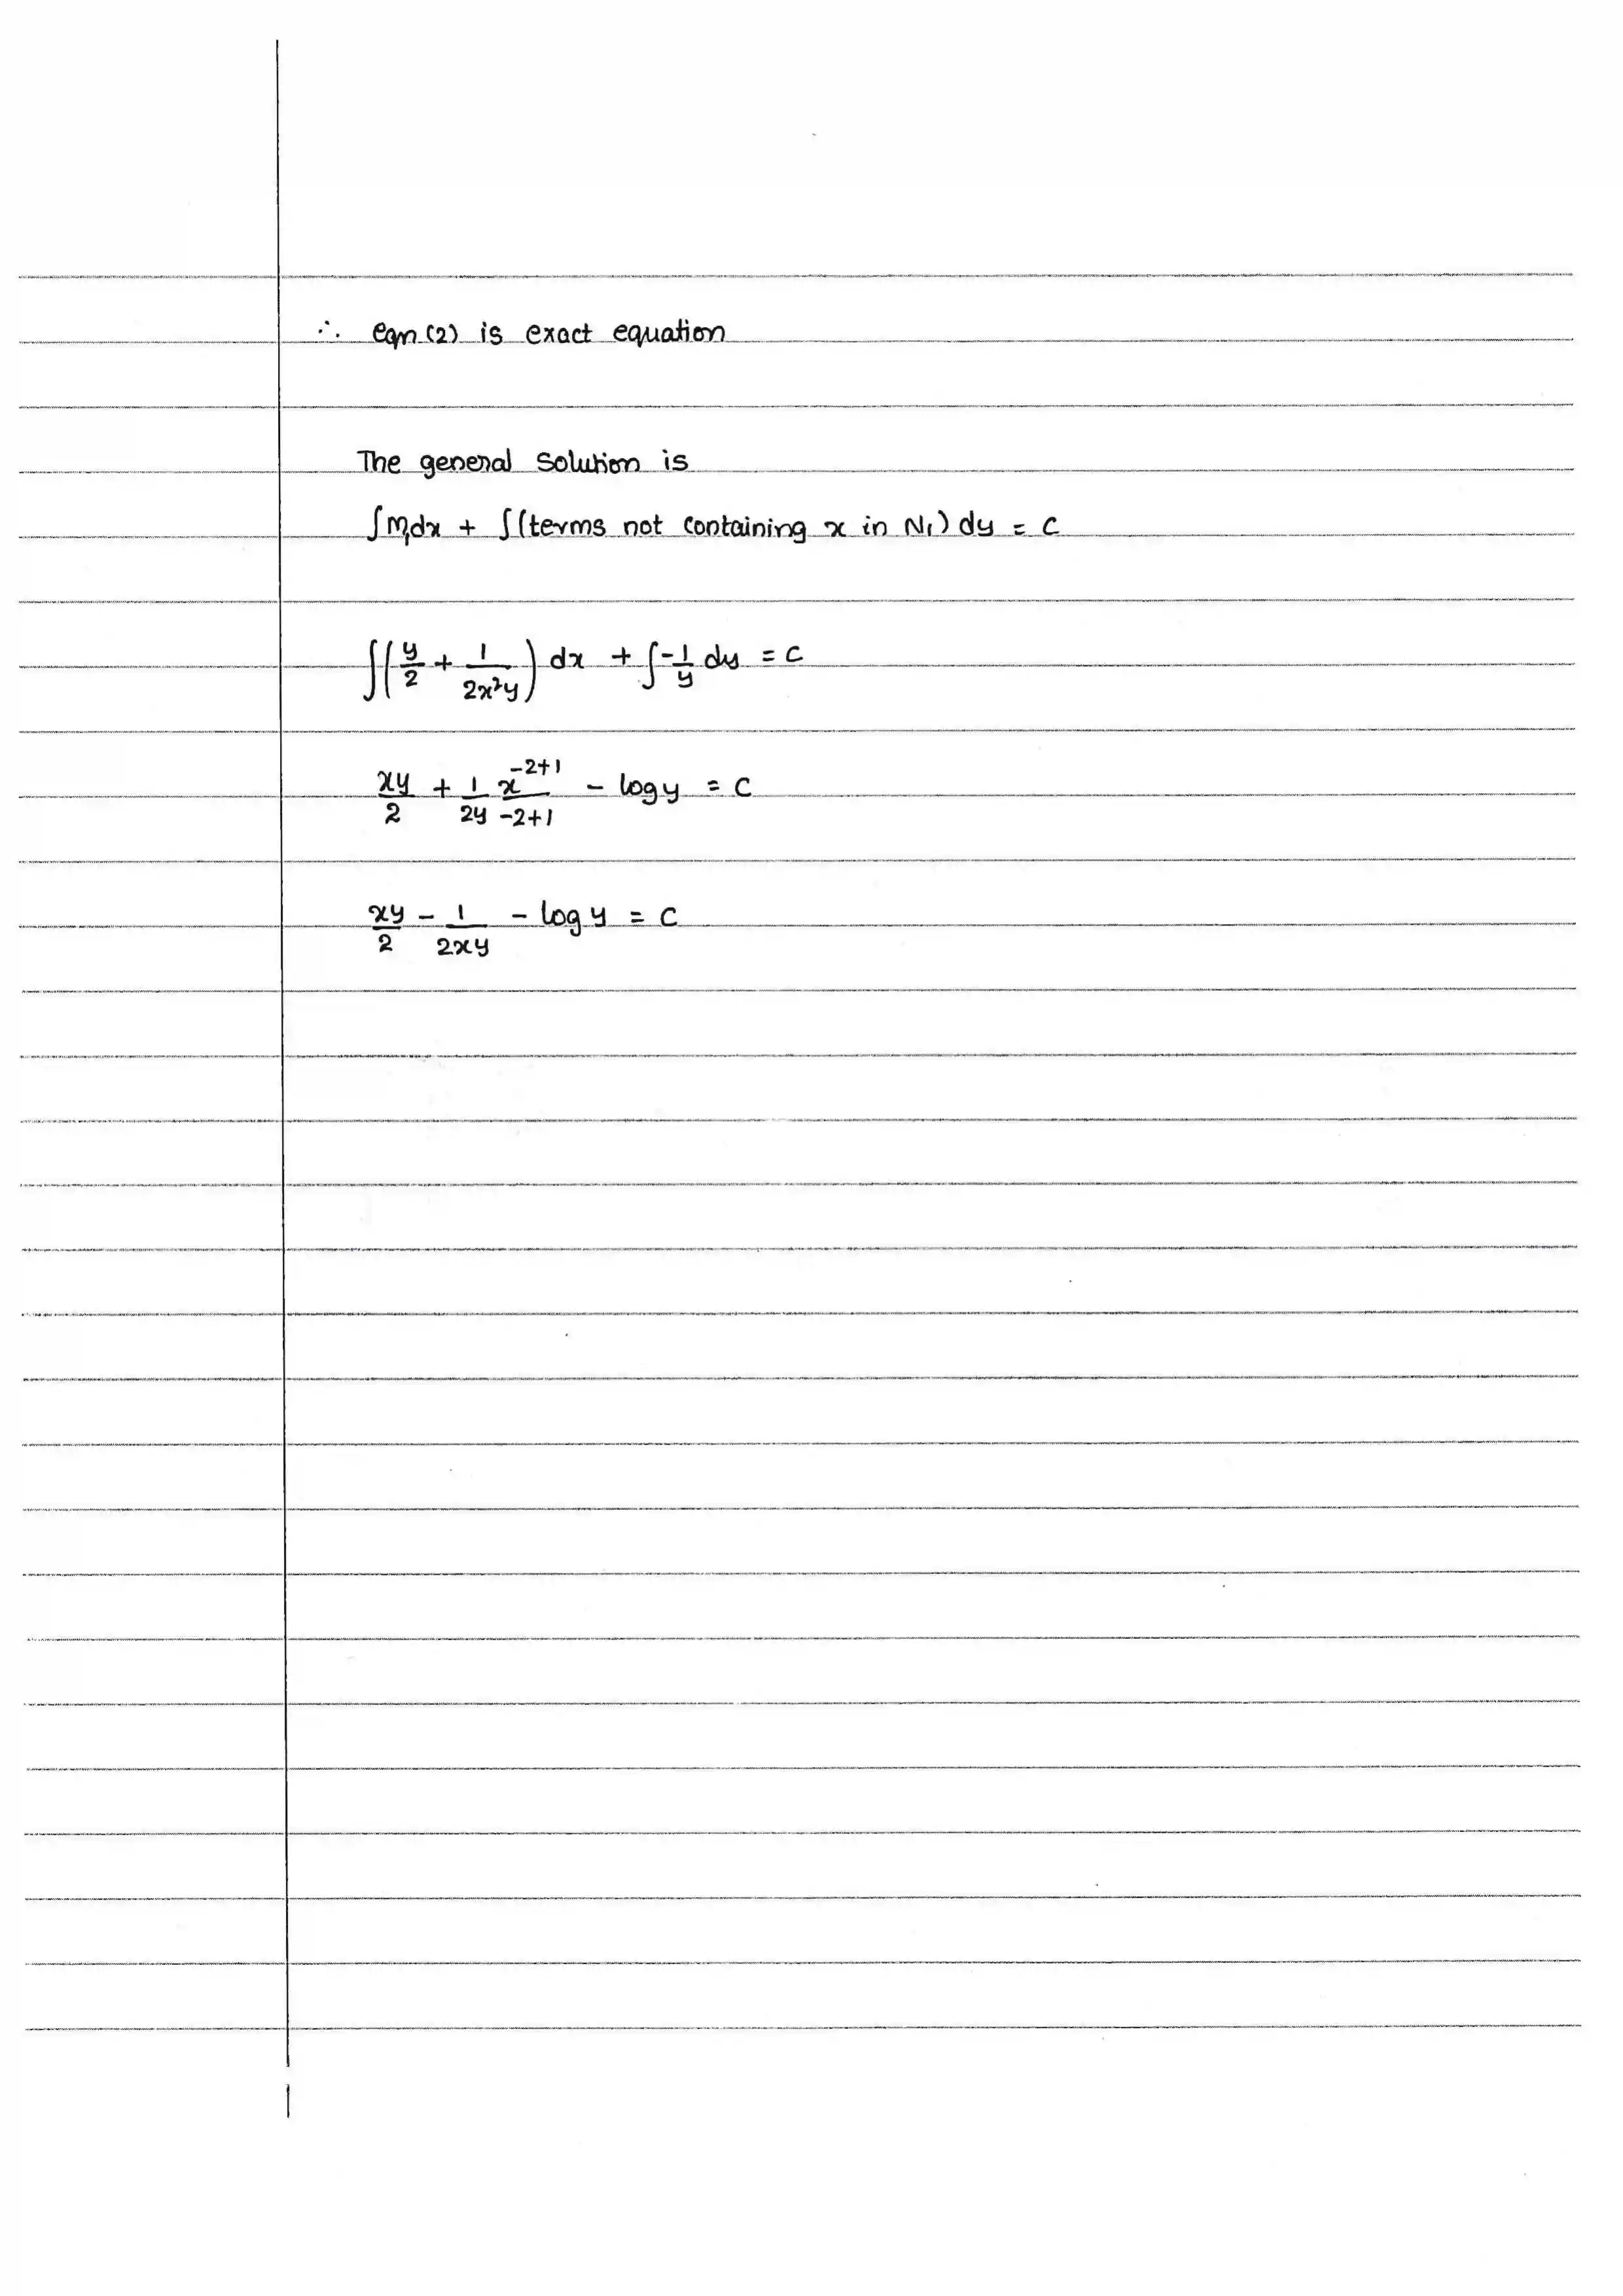 ∴ eqn (2) is exact equation
The general solution is
∫M₁dx + ∫(terms not containing x in N₁) dy = c
∫(y/2 + 1/(2x²y)) dx + ∫-1/y dy = c
xy/2 + 1/2y x^(-2+1)/(-2+1) - logy = c
xy/2 - 1/(2xy) - log y = c